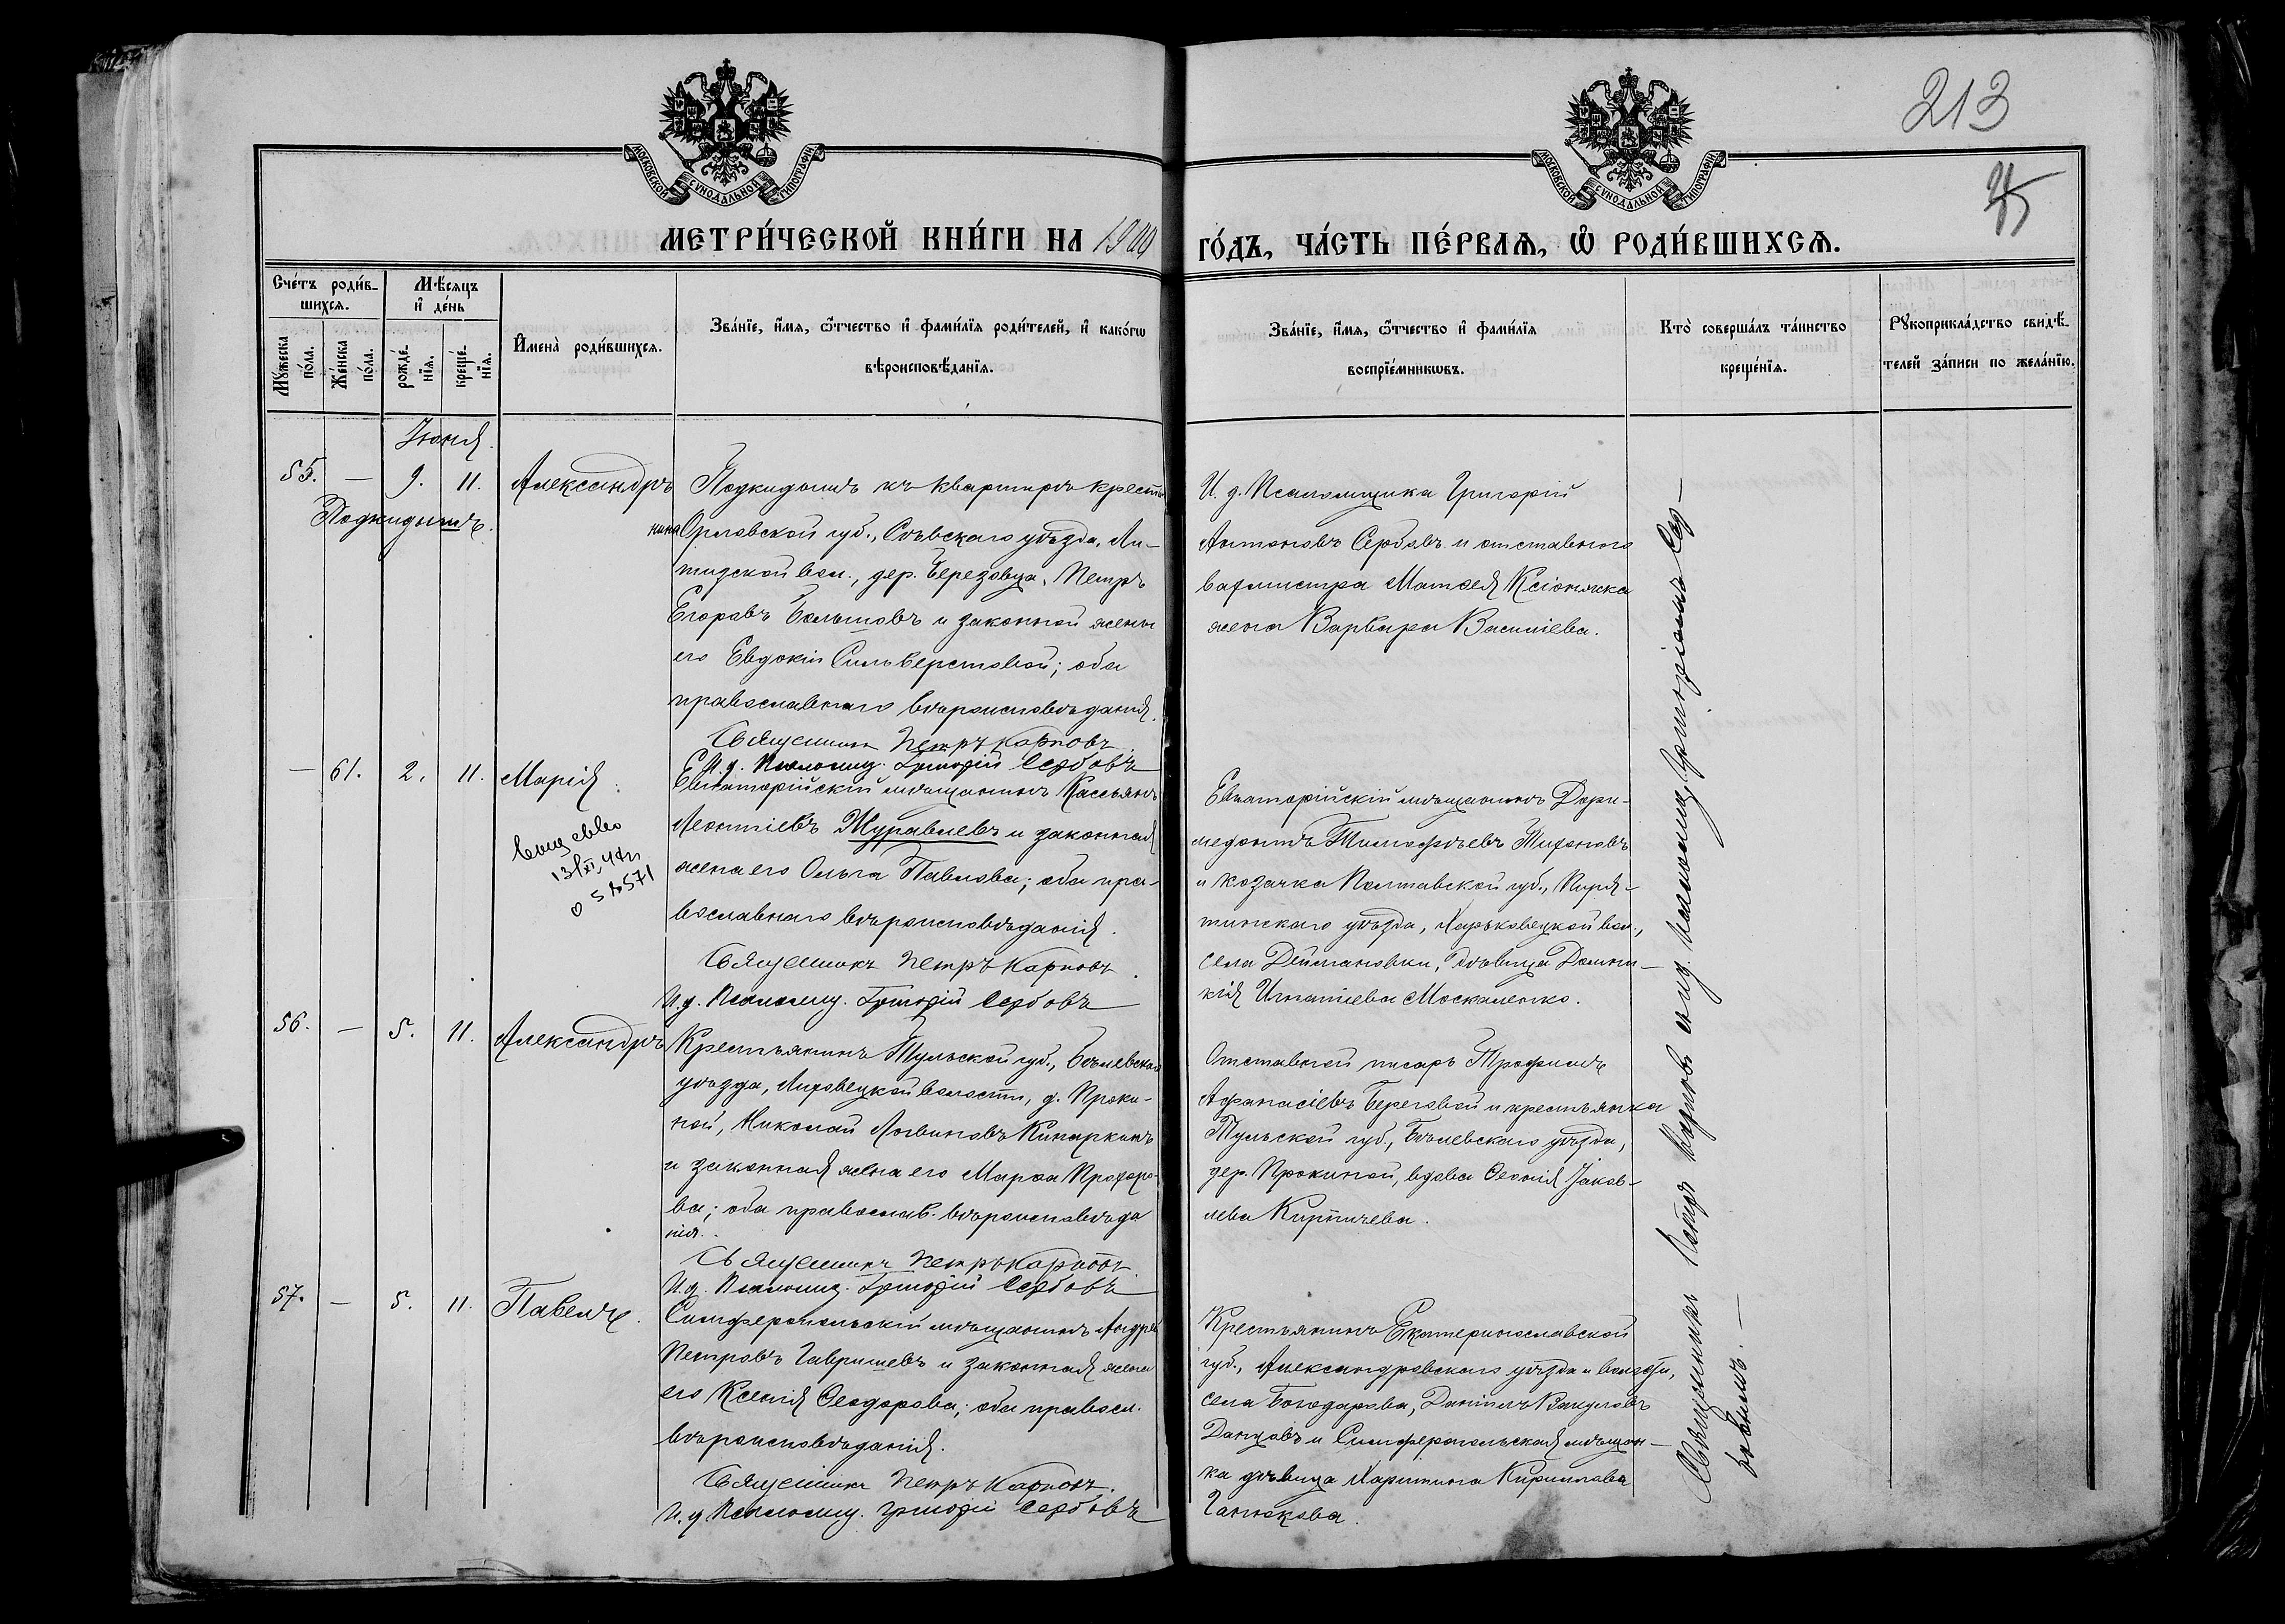 213
МОСКОВСКОЙ СѴНОДАЛЬНОЙ ТИПОГРАФІИ
МОСКОВСКОЙ СѴНОДАЛЬНОЙ ТИПОГРАФІИ
МЕТРИ́ЧЕСКОЙ КНИ́ГИ НА 1900
ГО́ДЪ, ЧА́СТЬ ПЕ́РВАѦ, Ѡ҆ РОДИ́ВШИХСѦ.
Сче́тъ роди́в-
шихсѧ.
Мѣ́сѧцъ
и҆ де́нь
Мꙋ́жеска
по́ла.
Же́нска
по́ла.
рожде́-
нїѧ.
креще́-
нїѧ.
И҆мена̀ роди́вшихсѧ.
Зва́нїе, и҆́мѧ, ѻ҆́тчество и҆ фами́лїѧ роди́телей, и҆ како́гѡ
вѣроисповѣ́данїѧ.
Зва́нїе, и҆́мѧ, ѻ҆́тчество и҆ фами́лїѧ
воспрїе́мникѡвъ.
Кто̀ соверша́лъ та́инство
креще́нїѧ.
Рꙋкоприкла́дство свидѣ́-
телей за́писи по жела́нїю.
Іюня.
55. — 9. 11. Александръ
Подкидышъ.
Подкидышъ къ квартирѣ крестья-
нина Орловской губ., Сѣвскаго уѣзда, Ли-
тизской вол., дер. Березовца, Петръ
Егоровъ Больтовъ и законной жены
его Евдокіи Сильверстовой; оба
православнаго вѣроисповѣданія.
Священникъ Петръ Карповъ.
И. д. Псаломщ. Григорій Сербовъ
И. д. Псаломщика Григорій
Антоновъ Сербовъ и отставного
вахмистра Матѳея Ксіонжска
жена Варвара Василіева.
— 61. 2. 11. Марія.
Евпаторійскій мѣщанинъ Кассьянъ
Леонтіевъ Журавлевъ и законная
жена его Ольга Павлова; оба пра-
вославнаго вѣроисповѣданія.
Священникъ Петръ Карповъ.
И. д. Псаломщ. Григорій Сербовъ
Евпаторійскій мѣщанинъ Дори-
медонтъ Тимофѣевъ Тихоновъ
и козачка Полтавской губ., Пиря-
тинскаго уѣзда, Харьковецкой вол.,
села Деймановки, дѣвица Домни-
кія Игнатіева Москаленко.
56. — 5. 11. Александръ
Крестьянинъ Тульской губ., Бѣлевскаго
уѣзда, Лировецкой волости, д. Проки-
ной, Николай Логвиновъ Кипаркинъ
и законная жена его Марѳа Прохоро-
ва; оба православ. вѣроисповѣда
нія.
Священникъ Петръ Карповъ.
И. д. Псаломщ. Григорій Сербовъ
Отставной писарь Трофимъ
Афанасіевъ Береговой и крестьянка
Тульской губ., Бѣлевскаго уѣзда,
дер. Прокиной, вдова Ѳеонія Іаков-
лева Кирпичева.
57. — 5. 11. Павелъ.
Симферопольскій мѣщанинъ Андрей
Петровъ Гавришевъ и законная жена
его Ксенія Ѳеодорова; оба правосл.
вѣроисповѣданія.
Священникъ Петръ Карповъ.
И. д. Псаломщ. Григорій Сербовъ
Крестьянинъ Екатеринославской
губ., Александровскаго уѣзда и волости,
села Богодарова, Даніилъ Вакуловъ
Данцовъ и Симферопольская мѣщан-
ка дѣвица Харитина Кириллова
Ганюкова.
Священникъ Петръ Карповъ съ и. д. псаломщ. Григоріемъ Сер-
бовымъ.—